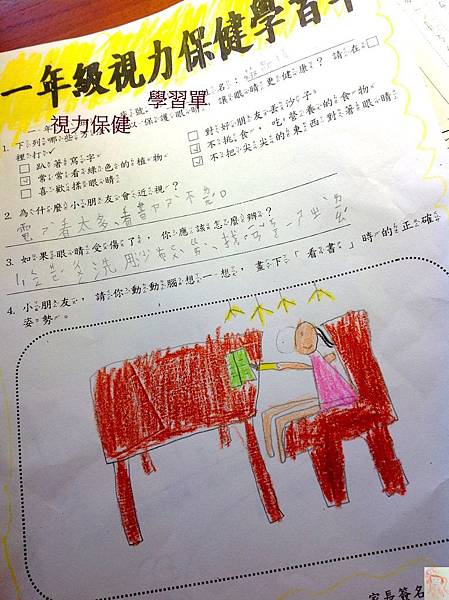 一年級視力保健學習單
學習單
視力保健
1. 下列哪些方法可以保護眼睛,讓眼睛更健康?請在□
裡打ˇ。
□ 趴著寫字
□ 常常看綠色的植物
□ 喜歡揉眼睛
□ 對好朋友丟沙子
□ 不挑食,吃營養的食物
□ 不把尖尖的東西對著眼睛
2. 為什麼小朋友會近視?
電ㄕ看太多看書
3. 如果眼睛受傷了,你應該怎麼辦?
4. 小朋友,請你動動腦想一想,畫下「看書」時的正確
姿勢。
家長簽名